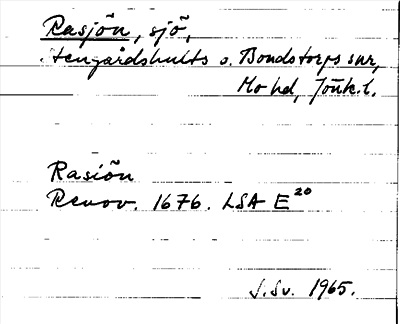 Rasjön, sjö,
Stengårdshults o. Bondstorps snr,
Mo hd, Jönk.l.
Rasiön
Renov. 1676. LSA E²⁰
J.Sv. 1965.